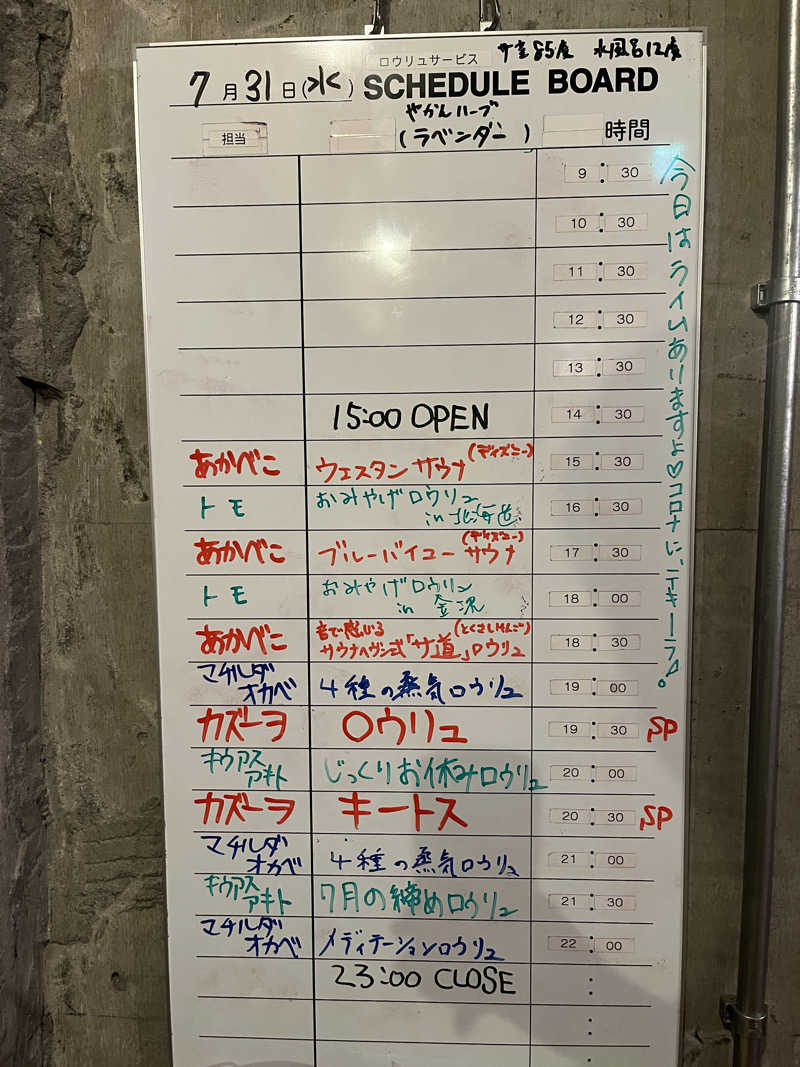 ロウリュサービス
サ室85度 水風呂12度
7月31日(水) SCHEDULE BOARD
やかんハーブ
担当 (ラベンダー) 時間
9:30
10:30
11:30
12:30
13:30
15:00 OPEN 14:30
あかべこ ウェスタンサウナ(ディズニー) 15:30
トモ おみやげロウリュ in 北海道 16:30
あかべこ ブルーバイユーサウナ(ディズニー) 17:30
トモ おみやげロウリュ in 金沢 18:00
あかべこ 音で感じる(とくさしけんご)
サウナヘヴン式「サ道」ロウリュ 18:30
マチルダオカベ 4種の蒸気ロウリュ 19:00
カズーヲ ロウリュ 19:30 SP
キウアスアキト じっくりお休みロウリュ 20:00
カズーヲ キートス 20:30 SP
マチルダオカベ 4種の蒸気ロウリュ 21:00
キウアスアキト 7月の締めロウリュ 21:30
マチルダオカベ メディテーションロウリュ 22:00
23:00 CLOSE :
:
:
今日はライムありますよ♡コロナに、テキーラ♪。